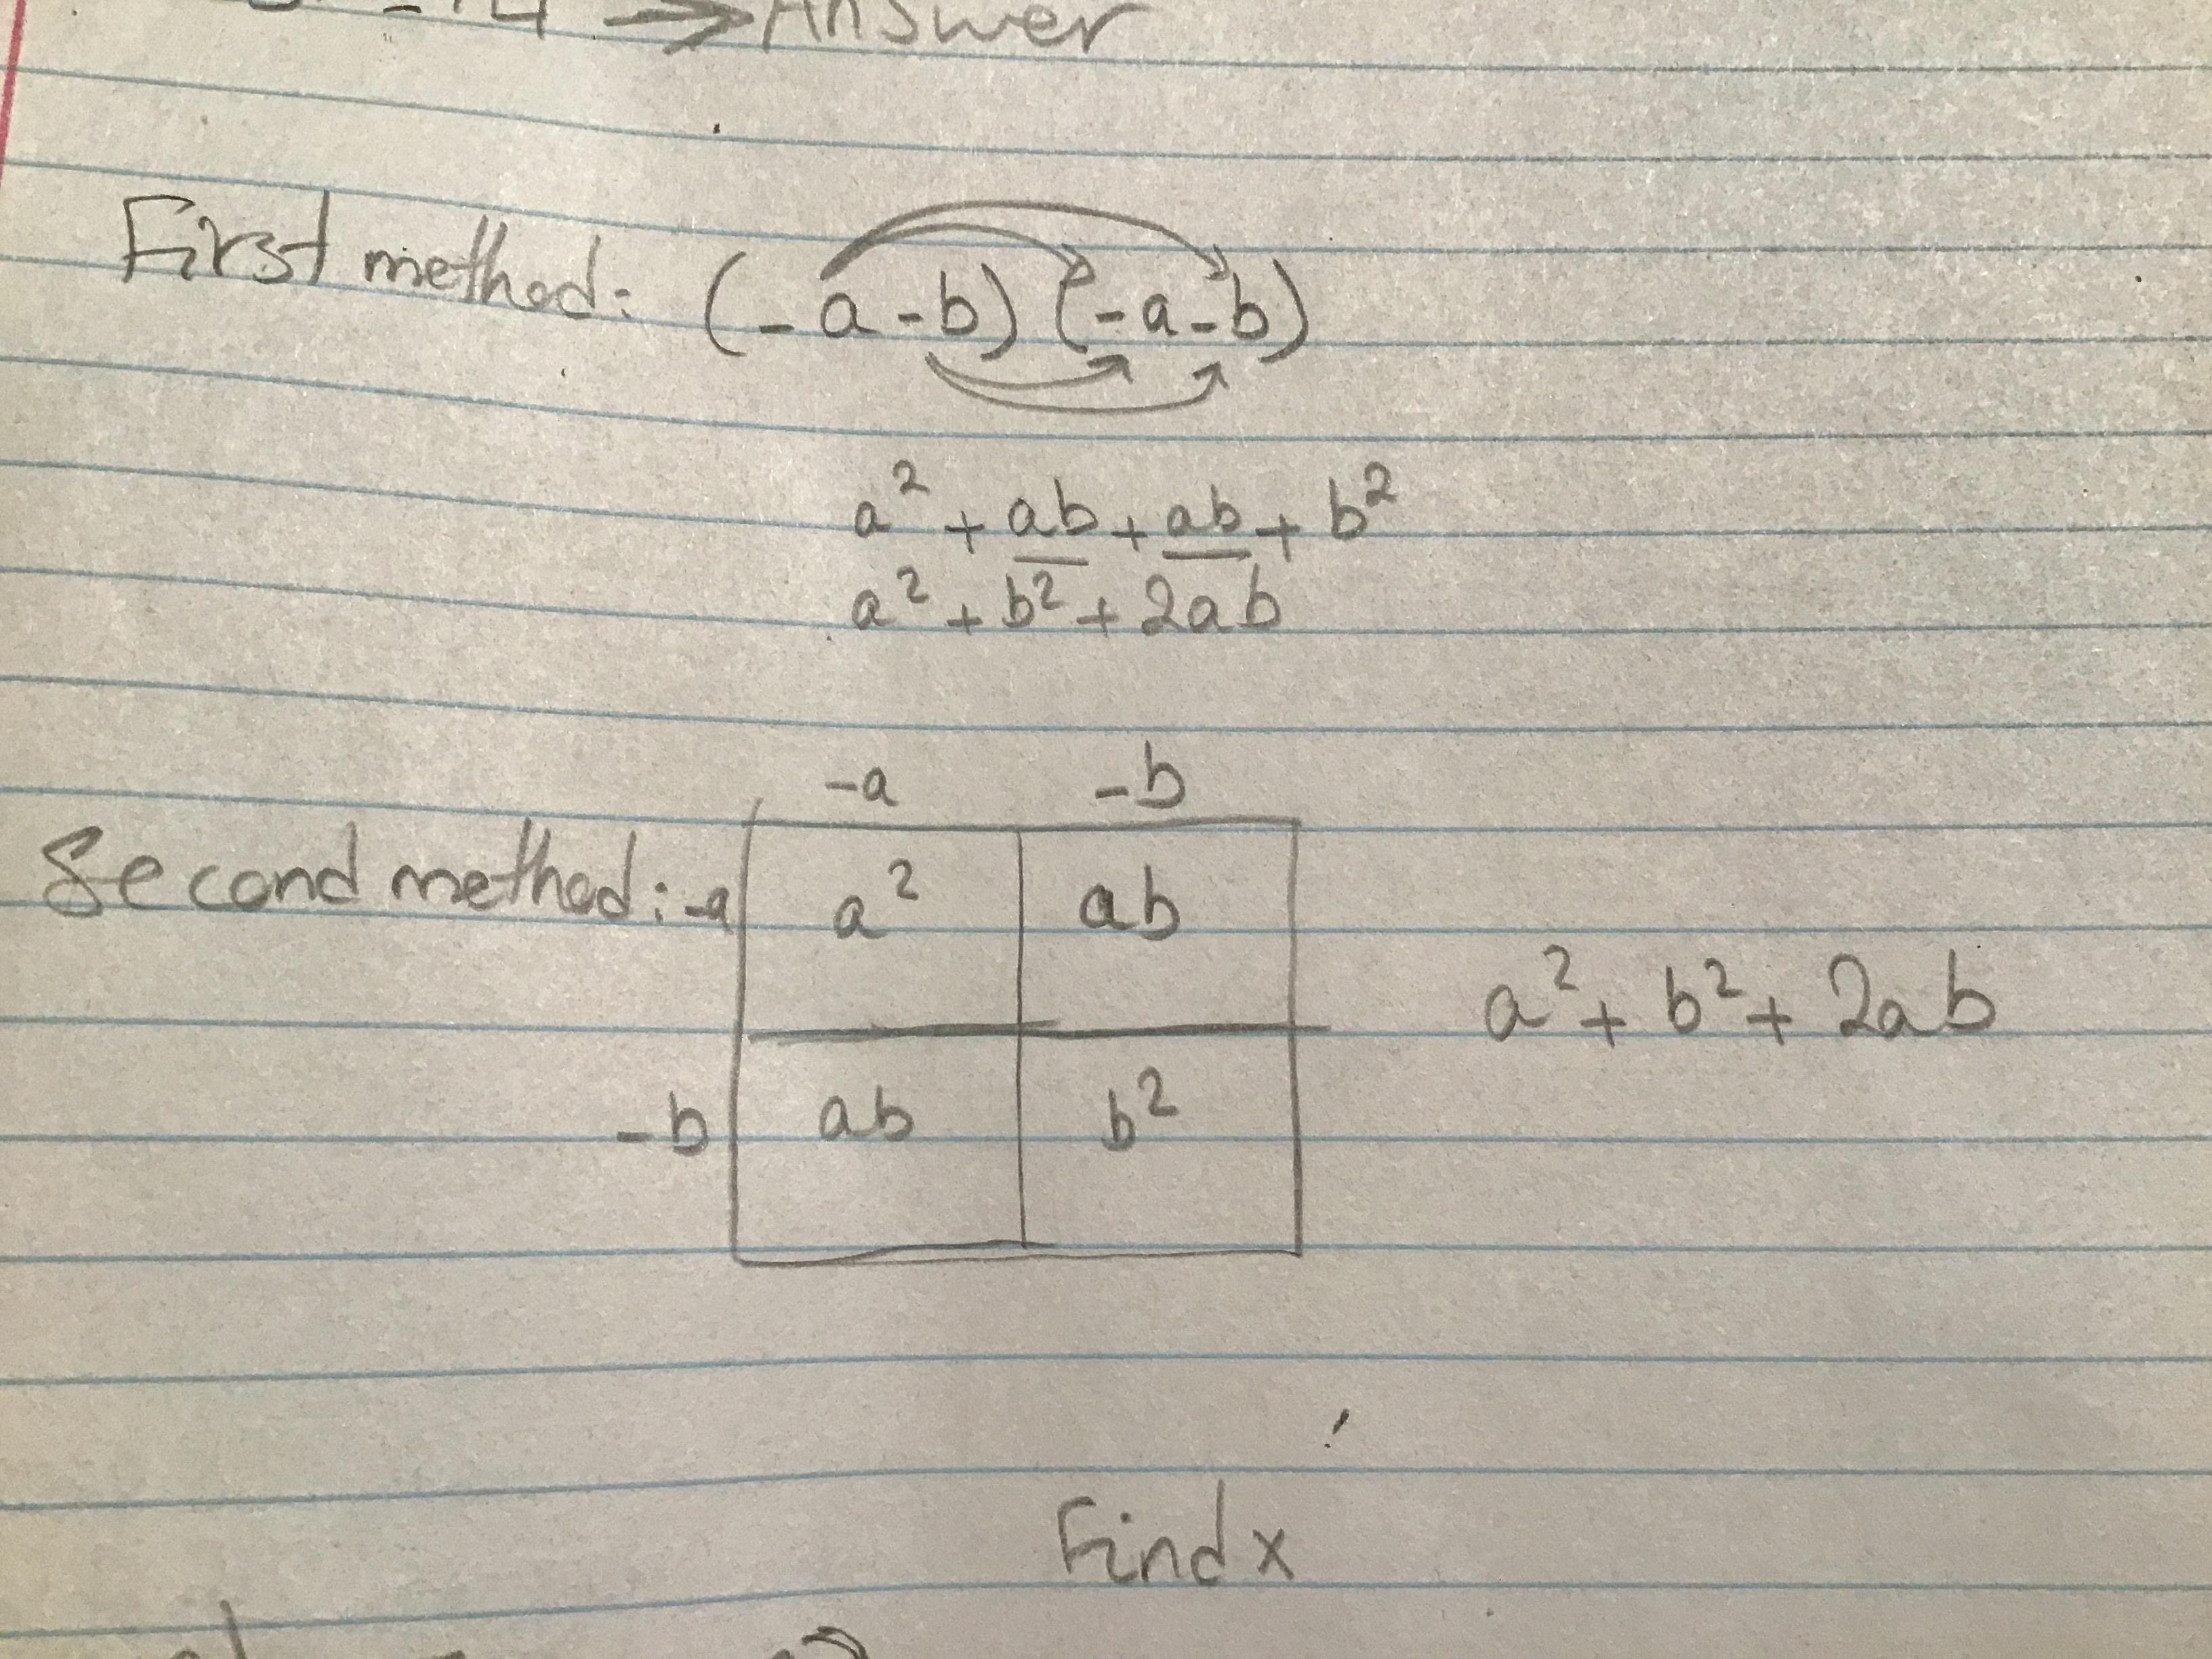 -14 → Answer
First method: (-a-b)(-a-b)
a² + ab + ab + b²
a² + b² + 2ab
-a -b
Second method: -a a² ab
a² + b² + 2ab
-b ab b²
Find x